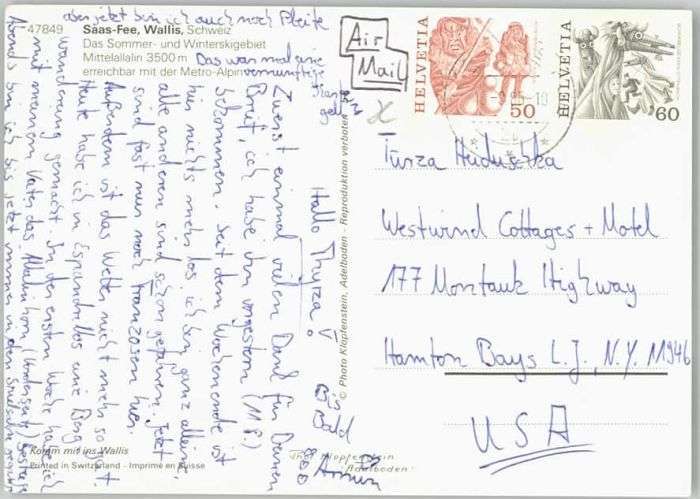 aber jetzt bin ich auch noch Pleite
47849 Saas-Fee, Wallis, Schweiz
Das Sommer- und Winterskigebiet
Mittelallalin 3500 m Das war mal eine
erreichbar mit der Metro-Alpin vernünftige
Air
Mail
HELVETIA
50
HELVETIA
60
Hallo Thyrza!
Zuerst einmal vielen Dank für Deinen
Brief, ich habe ihn vorgestern (11.8.)
bekommen. Seit dem Wochenende ist
hier nichts mehr los, ich bin ganz alleine,
alle anderen sind schon gefahren. Jetzt
sind fast nur noch Franzosen hier.
Außerdem ist das Wetter nicht mehr so gut.
Heute habe ich in Espandrillos eine Berg-
wanderung gemacht. In der ersten Woche habe ich
mit meinem Vater das Allalinhorn
Abends bin ich bis jetzt immer in den
Bis
Bald
Turza
Westwind Cottages + Motel
177 Montauk Highway
Hamton Bays L.J., N.Y. 11946
USA
© Photo Klopfenstein, Adelboden - Reproduktion verboten
Komm mit ins Wallis
Printed in Switzerland - Imprimé en Suisse
Photo Klopfenstein
Adelboden